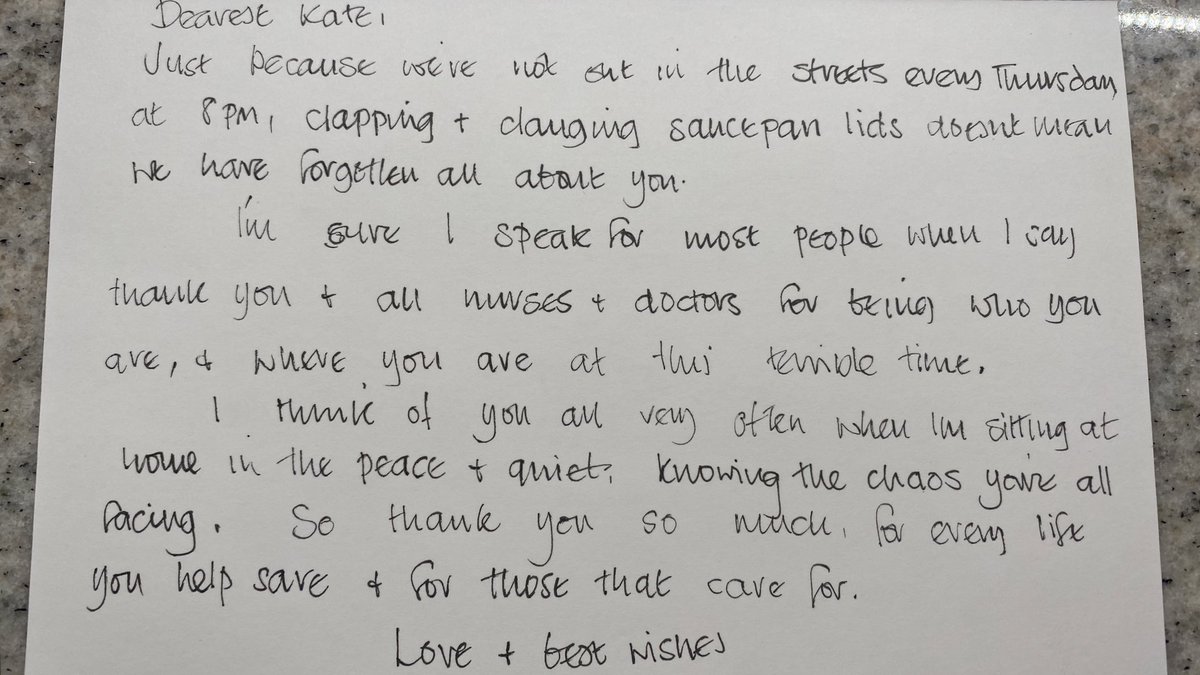 Dearest Kate,
Just because we've not out in the streets every Thursday
at 8pm, clapping + clanging saucepan lids doesn't mean
we have forgotten all about you.
I'm sure I speak for most people when I say
thank you + all nurses + doctors for being who you
are, + where you are at this terrible time.
I think of you all very often when I'm sitting at
home in the peace + quiet, knowing the chaos you're all
facing. So thank you so much, for every life
you help save + for those that care for.
Love + best wishes